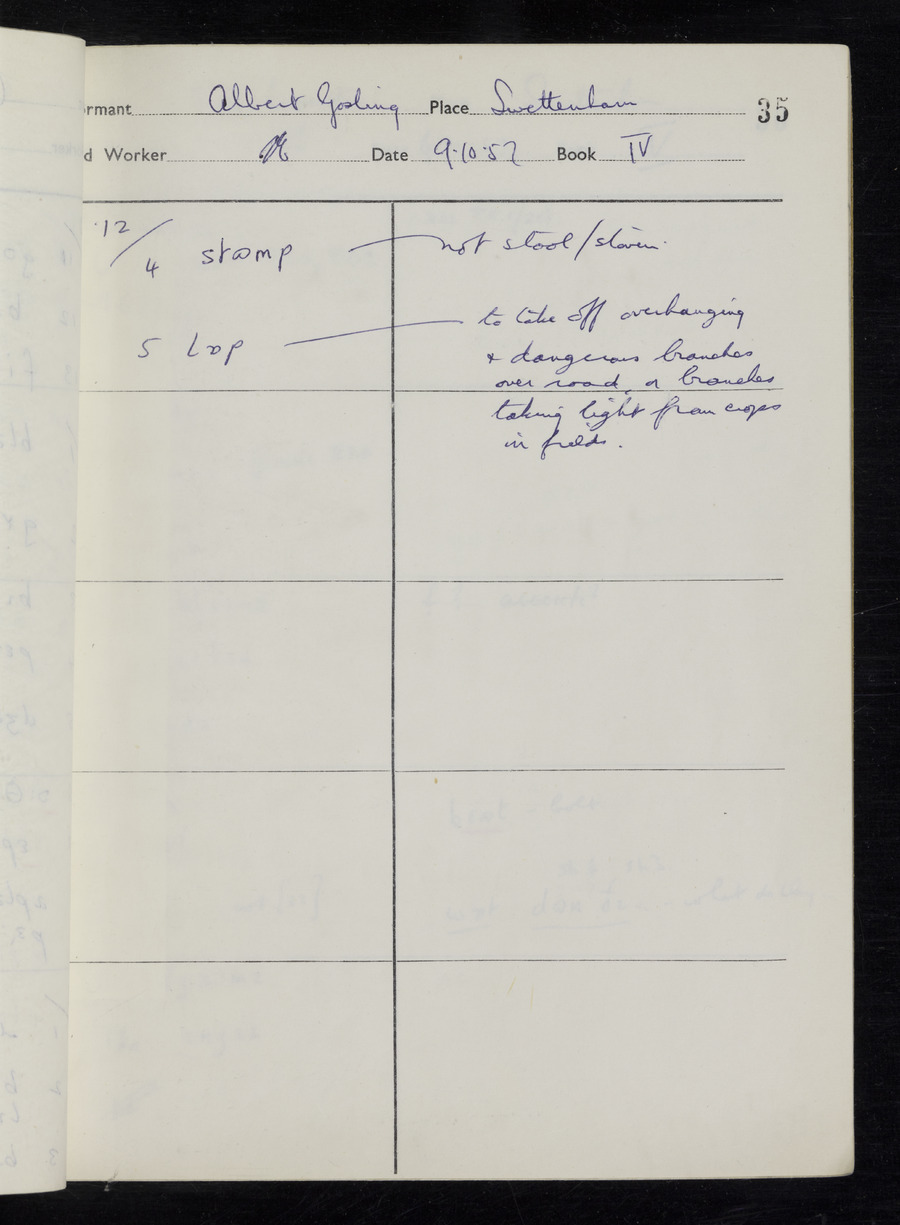 rmant Albert Gosling Place Swettenham 35
d Worker Date 9.10.57 Book IV
12/
4 stɷmp not stool/stoven.
5 lɒp to take off overhanging
+ dangerous branches
over road, or branches
taking light from crops
in fields.